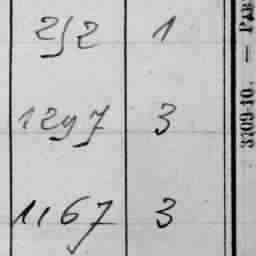 252 1
1297 3
1167 3
3709-10. — PAB